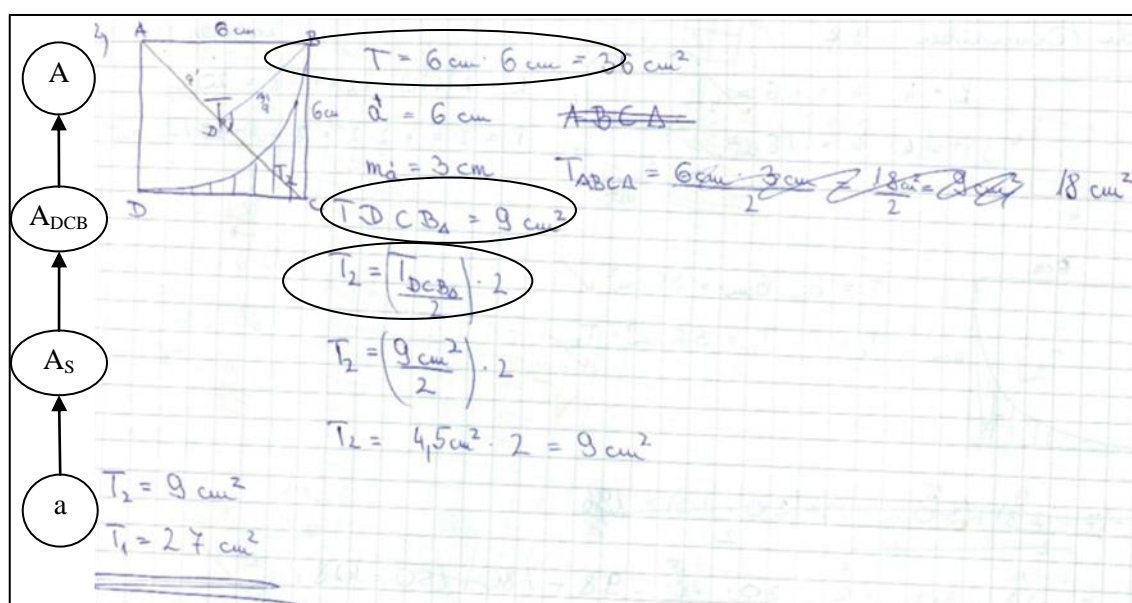 A
A_DCB
A_S
a
A 6 cm B
6 cm
D C
T = 6 cm · 6 cm = 36 cm²
a = 6 cm ABCΔ
m_a = 3 cm T_ABCΔ = 6cm · 3cm / 2 = 18 cm² / 2 = 9 cm² 18 cm²
T DCBΔ = 9 cm²
T₂ = (T_DCBΔ / 2) · 2
T₂ = (9 cm² / 2) · 2
T₂ = 4,5 cm² · 2 = 9 cm²
T₂ = 9 cm²
T₁ = 27 cm²